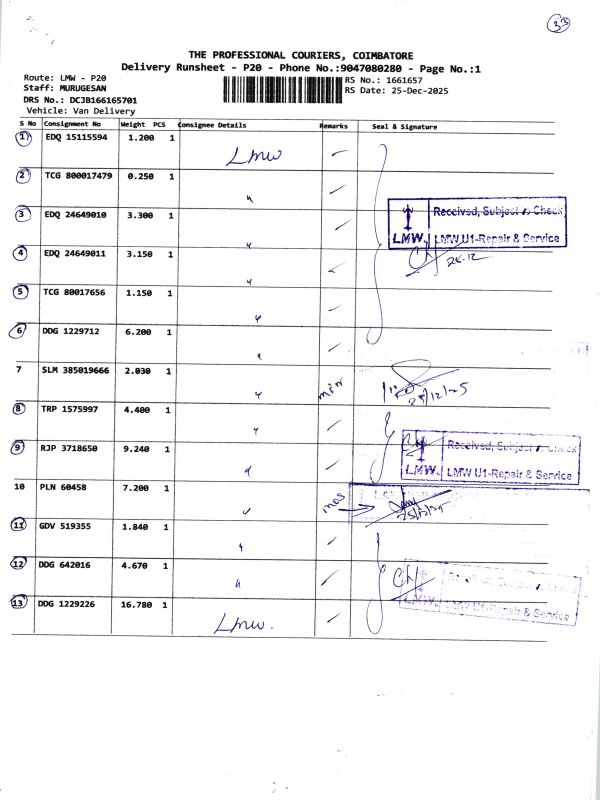 33
THE PROFESSIONAL COURIERS, COIMBATORE
Delivery Runsheet - P20 - Phone No.:9047080280 - Page No.:1
Route: LMW - P20
RS No.: 1661657
Staff: MURUGESAN
RS Date: 25-Dec-2025
DRS No.: DCJB166165701
Vehicle: Van Delivery
S No Consignment No Weight PCS Consignee Details Remarks Seal & Signature
1 EDQ 15115594 1.200 1 LMW
2 TCG 800017479 0.250 1 "
3 EDQ 24649010 3.300 1 "
Received, Subject to Check
LMW. LMW U1-Repair & Service
4 EDQ 24649011 3.150 1 "
5 TCG 80017656 1.150 1 "
6 DDG 1229712 6.200 1 "
7 SLM 385019666 2.030 1 "
25/12/25
8 TRP 1575997 4.400 1 "
9 RJP 3718650 9.240 1 "
Received, Subject to Check
LMW. LMW U1-Repair & Service
10 PLN 60458 7.200 1 "
11 GDV 519355 1.840 1 "
12 DDG 642016 4.670 1 "
Received, Subject to Check
LMW. LMW U1-Repair & Service
13 DDG 1229226 16.780 1 LMW.